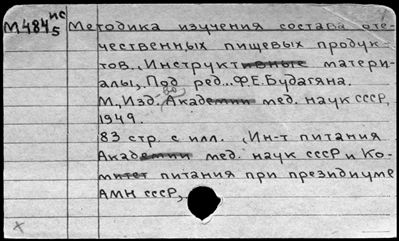 М484 ИС 5 Методика изучения состава оте-
чественных пищевых продук-
тов. Инструктивные матери-
алы, Под ред. Ф.Е.Будагяна.
М., Изд. Академии мед. наук СССР,
1949.
83 стр. с илл. (Ин-т питания
Академии мед. наук СССР и Ко-
митет питания при президиуме
АМН СССР)